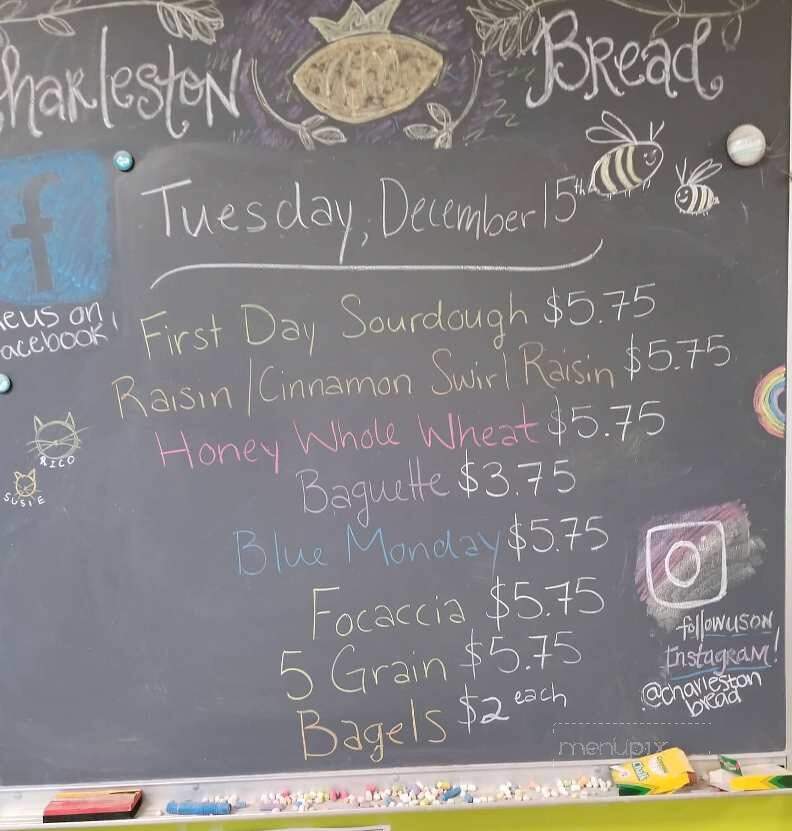 Charleston Bread
Tuesday, December 15th
First Day Sourdough $5.75
Raisin/Cinnamon Swirl Raisin $5.75
Honey Whole Wheat $5.75
Baguette $3.75
Blue Monday $5.75
Focaccia $5.75
5 Grain $5.75
Bagels $2 each
f
eus on
acebook!
RICO
SUSIE
follow us on
Instagram!
@charleston
bread
menupix